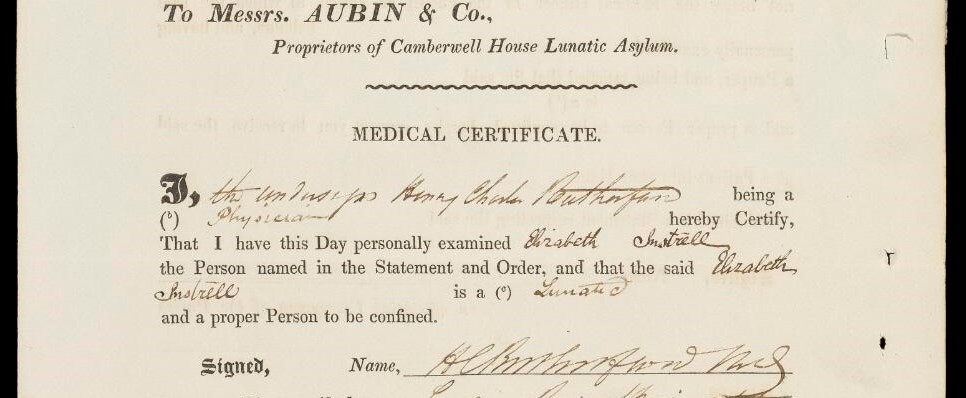 To Messrs. AUBIN & Co.,
Proprietors of Camberwell House Lunatic Asylum.
MEDICAL CERTIFICATE.
I, the undersign Henry Charles Rutherford being a
(b) Physician hereby Certify,
That I have this Day personally examined Elizabeth Instrell
the Person named in the Statement and Order, and that the said Elizabeth
Instrell is a (c) Lunatic
and a proper Person to be confined.
Signed, Name, HCRutherford